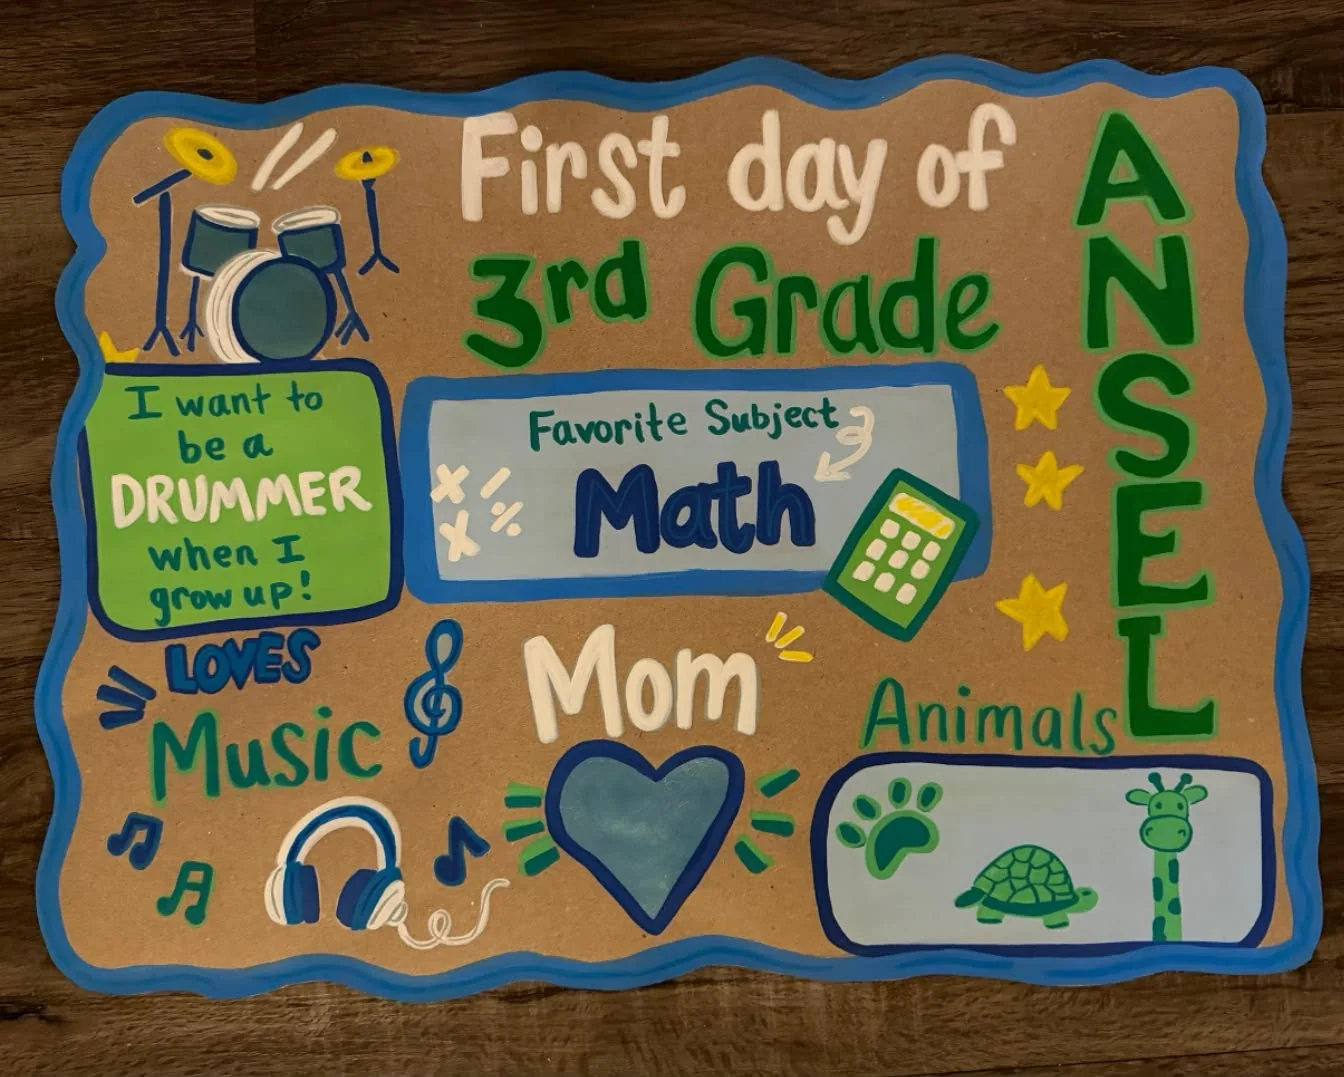 First day of
3rd Grade
ANSEL
I want to
be a
DRUMMER
when I
grow up!
Favorite Subject
Math
× -
× %
LOVES
Music
Mom
Animals